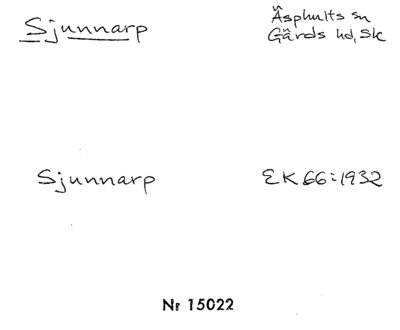 Sjunnarp
Åsphults sn
Gärds hd, Sk
Sjunnarp
EK 66:1932
Nr 15022